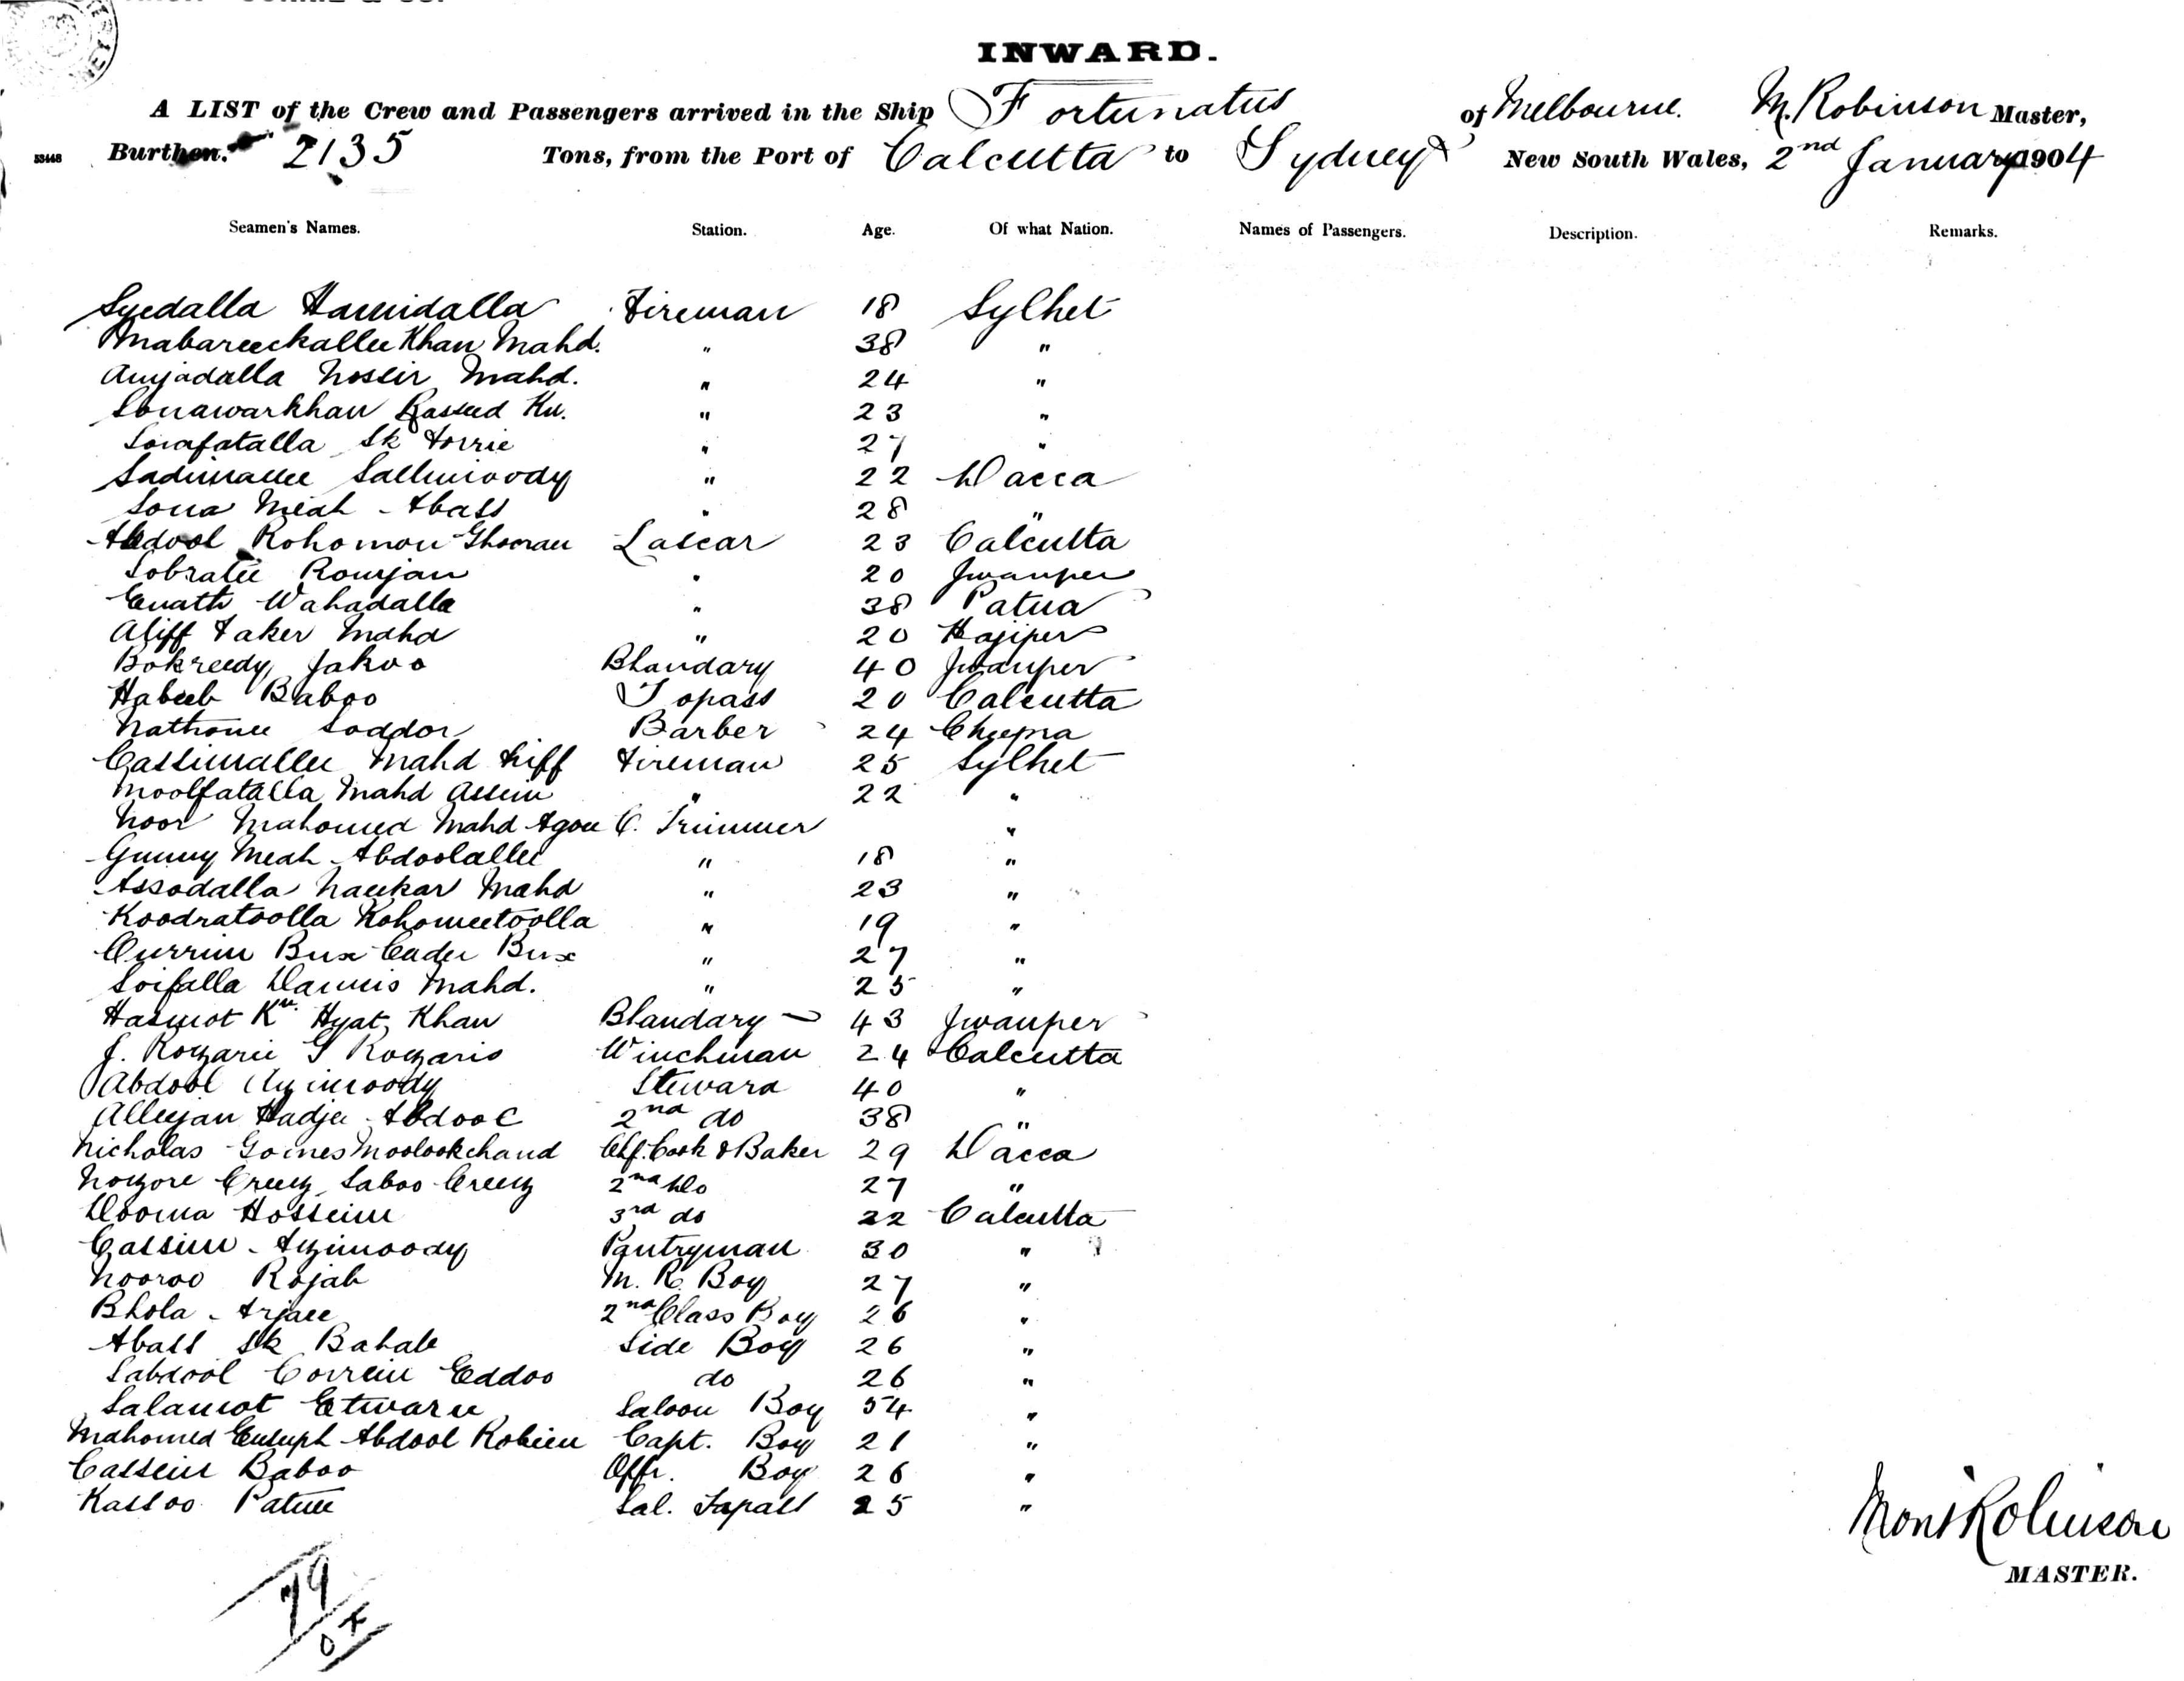 INWARD.
A LIST of the Crew and Passengers arrived in the Ship Fortunatus of Melbourne. M. Robinson Master,
53448 Burthen. 2135 Tons, from the Port of Calcutta to Sydney New South Wales, 2nd January 1904
Seamen's Names. Station. Age. Of what Nation. Names of Passengers. Description. Remarks.
Syedalla Hamidalla Fireman 18 Sylhet
Mabareeckallee Khan Mahd. " 38 "
Amjadalla Nossir Mahd. " 24 "
Sonawarkhan Rasseed Kn. " 23 "
Sorafatalla Sk Torrie " 27 "
Sadimallee Sallimoody " 22 Dacca
Sona Meah Abass " 28 "
Abdool Rohomon Ghooran Lascar 23 Calcutta
Sobratee Romjan " 20 Jwanper
Enath Wahadalla " 38 Patna
Aliff Faker Mahd " 20 Hajiper
Bokreedy Jakoo Bhandary 40 Jwanper
Habeeb Baboo Topass 20 Calcutta
Nathonee Soddor Barber 24 Chupra
Cassimallee Mahd Siff Fireman 25 Sylhet
Moolfatalla Mahd Assim " 22 "
Noor Mahomed Mahd Agon C. Trimmer "
Gunny Meah Abdoolallee " 18 "
Assodalla Naukar Mahd " 23 "
Koodratoolla Rohomeetoolla " 19 "
Currim Bux Cader Bux " 27 "
Soifalla Dannis Mahd. " 25 "
Hasmot Kn. Hyat Khan Bhandary 43 Jwanper
J. Rozarie G Rozario Winchman 24 Calcutta
Abdool Azimoody Steward 40 "
Alleejan Hadjee Abdool 2nd do 38 "
Nicholas Gomes Moolookchand Chf. Cook & Baker 29 Dacca
Nozore Creez Saboo Creez 2nd Do 27 "
Dooma Hossein 3rd do 22 Calcutta
Cassim Azimoody Pantryman 30 "
Nooroo Rojab M. R. Boy 27 "
Bhola Arjaee 2nd Class Boy 26 "
Abass Sk Bahab Side Boy 26 "
Sabdool Correim Eddoo do 26 "
Salamot Etwaree Saloon Boy 54 "
Mahomed Eusuph Abdool Robien Capt. Boy 21 "
Cassein Baboo Offr. Boy 26 "
Kassoo Patnee Sal. Topass 25 "
Robinson
MASTER.
79
04